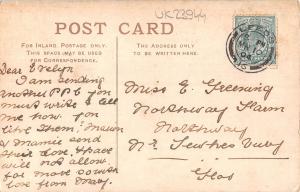 UK23944
POST CARD
FOR INLAND POSTAGE ONLY.
THIS SPACE MAY BE USED
FOR CORRESPONDENCE.
THE ADDRESS ONLY
TO BE WRITTEN HERE.
Dear Evelyn
I am sending
another P.P.C for
you must write & tell
me how you
like them. Mawn
& Mamie send
their love. I have
will not allow
for more so with
love from Mary.
Miss E Greening
Northway Farm
Northway
Nr Tewkesbury
Glos